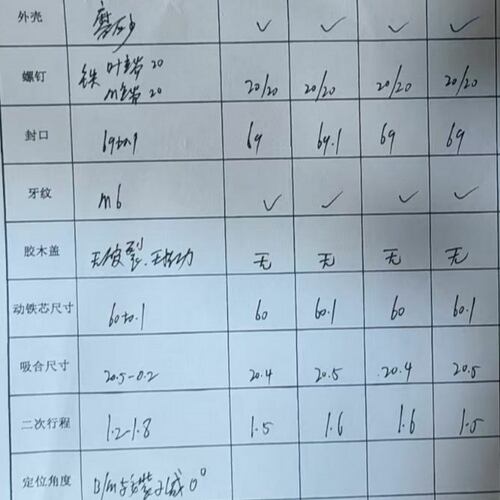 外壳 磨砂 ✓ ✓ ✓ ✓
螺钉 铁 20 20/20 20/20 20/20 20/20
M 20
封口 69±0.1 69 69.1 69 69
牙纹 M6 ✓ ✓ ✓ ✓
胶木盖 无破裂、无松动 无 无 无 无
动铁芯尺寸 60±0.1 60 60.1 60 60.1
吸合尺寸 20.5-0.2 20.4 20.5 20.4 20.5
二次行程 1.2-1.8 1.5 1.6 1.6 1.5
定位角度 B/M 成 0°